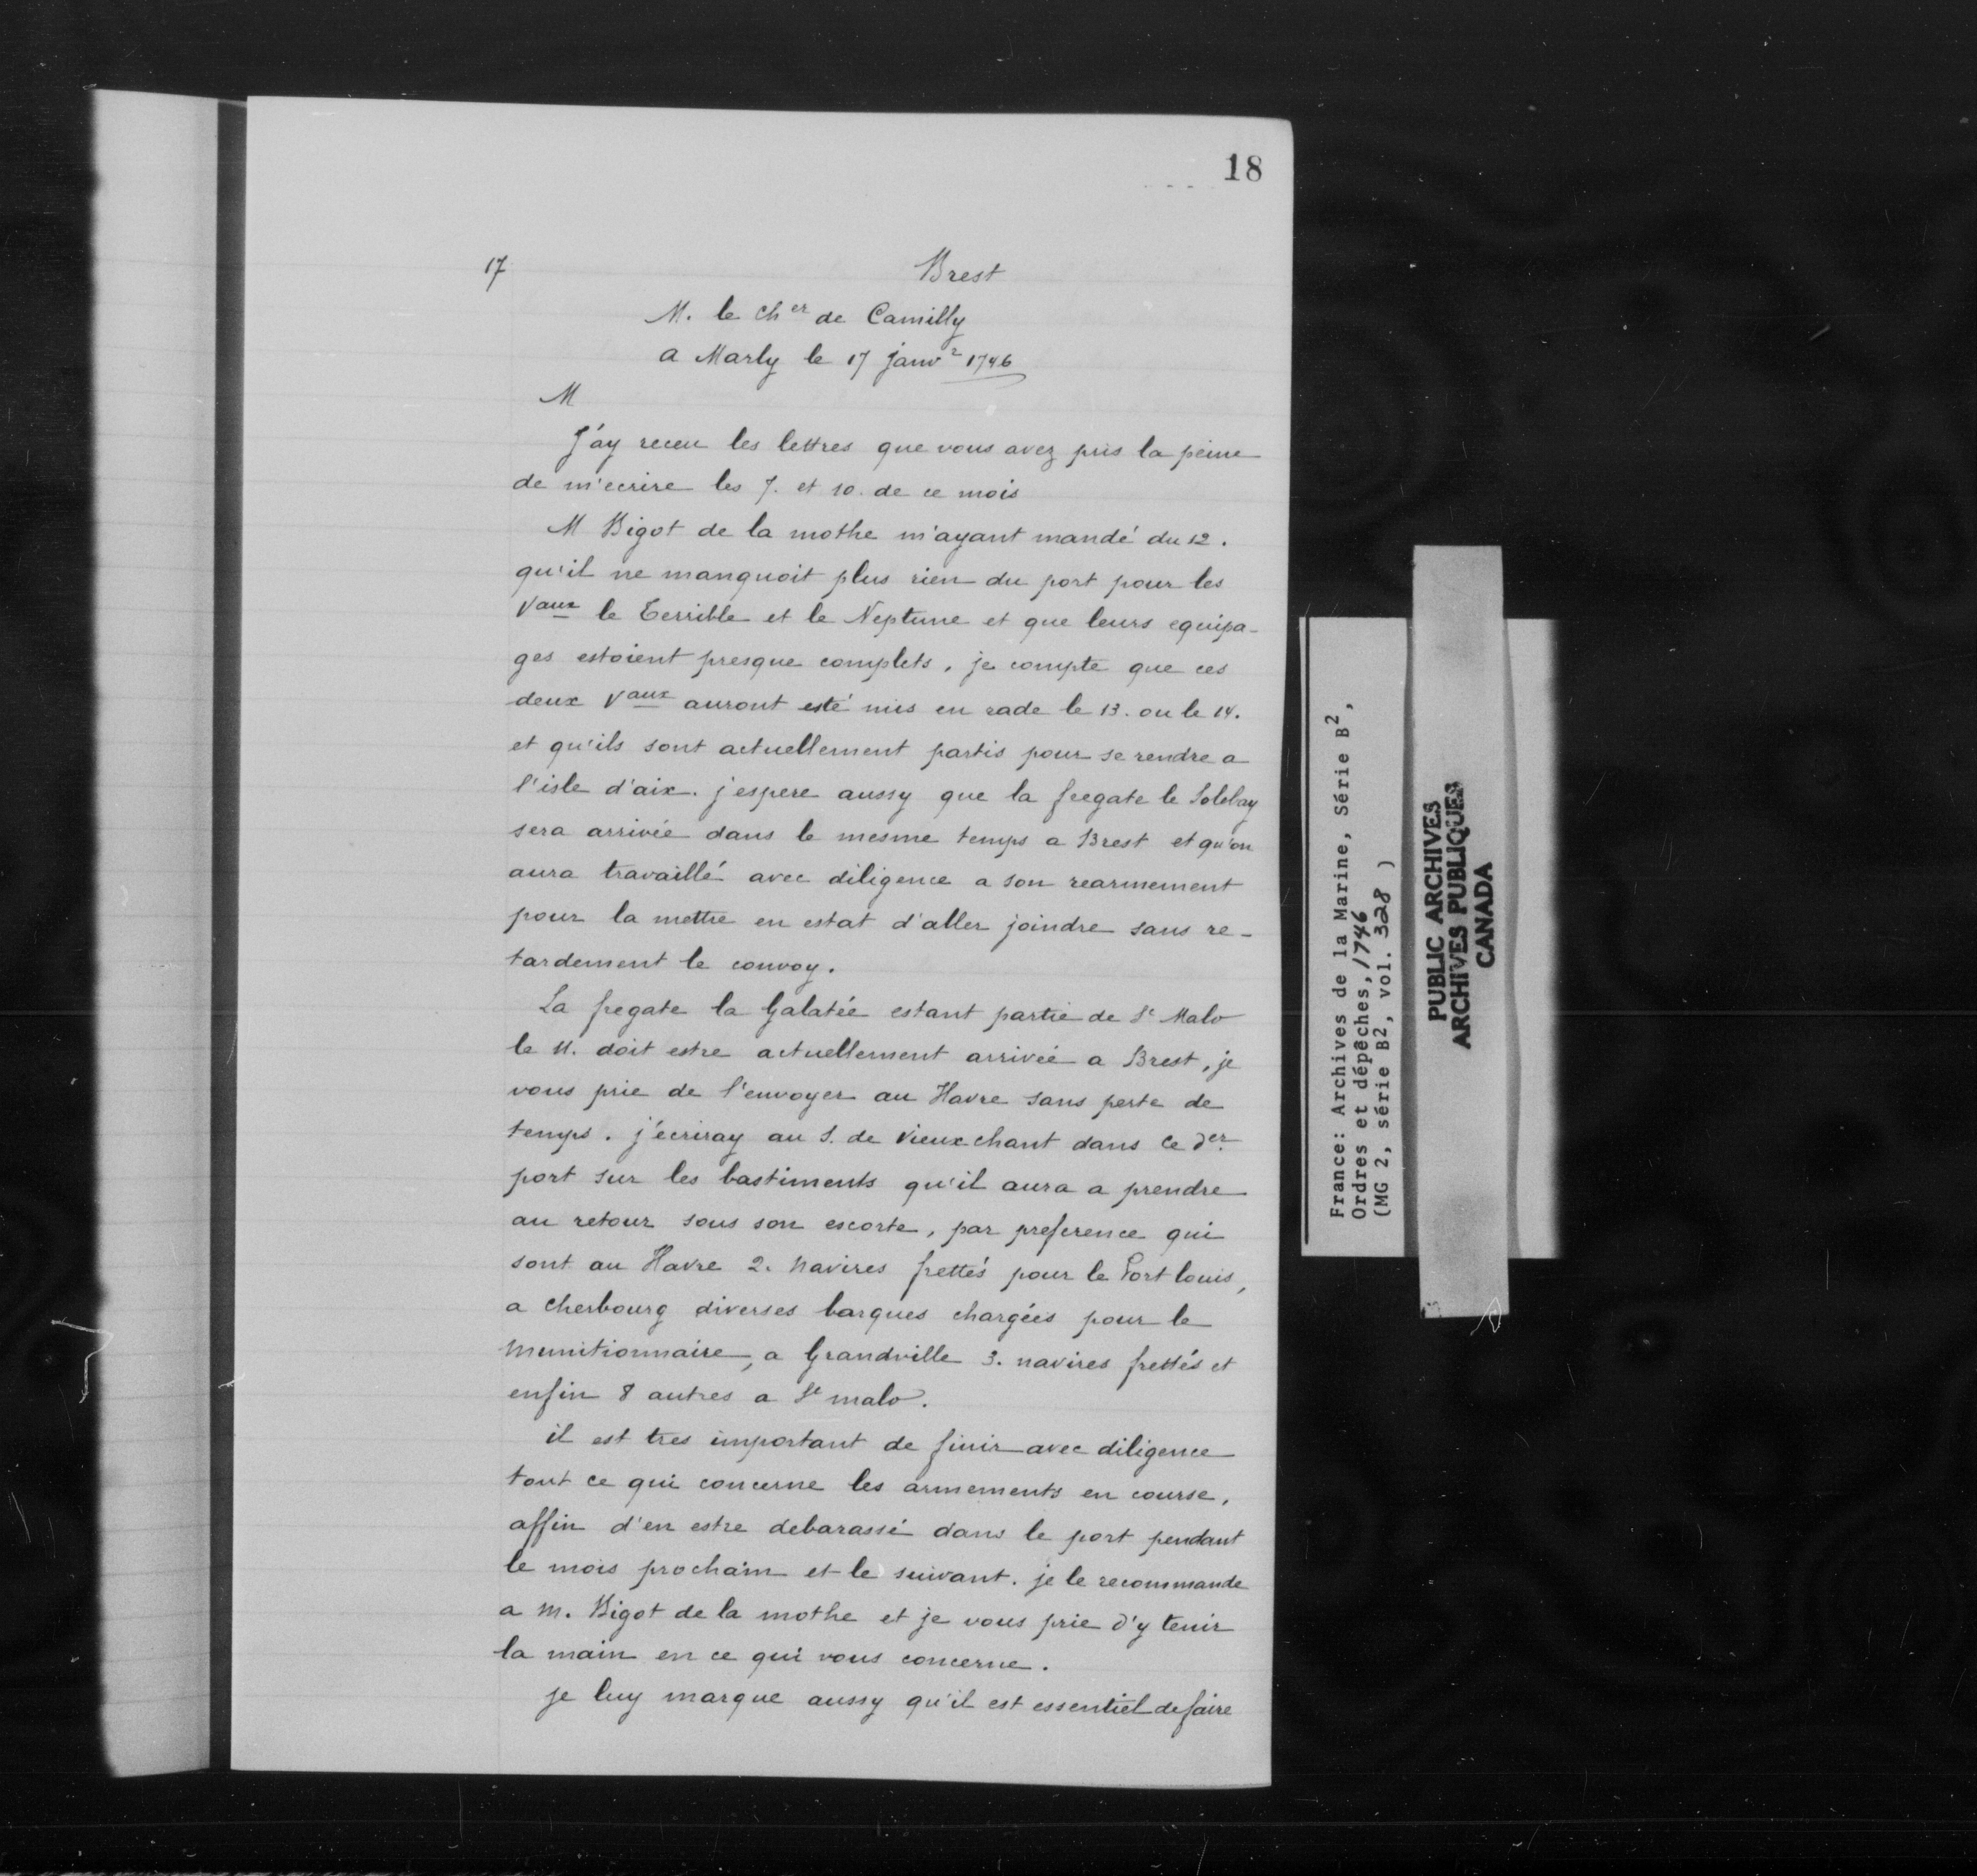 18
17
Brest
M. le cher de Camilly
a Marly le 17 janvr 1746
M
J'ay receu les lettres que vous avez pris la peine
de m'ecrire les 7. et 10. de ce mois
M Bigot de la mothe m'ayant mandé du 12.
qu'il ne manquoit plus rien du port pour les
Vaux le Terrible et le Neptune et que leurs equipa-
ges estoient presque complets, je compte que ces
deux Vaux auront esté mis en rade le 13. ou le 14.
et qu'ils sont actuellement partis pour se rendre a
l'isle d'aix. j'espere aussy que la fregate le Solebay
sera arrivée dans le mesme temps a Brest et qu'on
aura travaillé avec diligence a son rearmement
pour la mettre en estat d'aller joindre sans re-
tardement le convoy.
La fregate la Galatée estant partie de St Malo
le 11. doit estre actuellement arrivée a Brest, je
vous prie de l'envoyer au Havre sans perte de
temps. j'ecriray au S. de Vieuxchant dans ce der.
port sur les bastiments qu'il aura a prendre
au retour sous son escorte, par preference qui
sont au Havre 2. navires frettés pour le Port louis,
a cherbourg diverses barques chargées pour le
munitionnaire, a Grandville 3. navires frettés et
enfin 8 autres a St malo.
il est tres important de finir avec diligence
tout ce qui concerne les armements en course,
affin d'en estre debarassé dans le port pendant
le mois prochain et le suivant. je le recommande
a m. Bigot de la mothe et je vous prie d'y tenir
la main en ce qui vous concerne.
je luy marque aussy qu'il est essentiel de faire
France: Archives de la Marine, Série B2,
Ordres et dépêches, 1746
(MG 2, série B2, vol. 328 )
PUBLIC ARCHIVES
ARCHIVES PUBLIQUES
CANADA